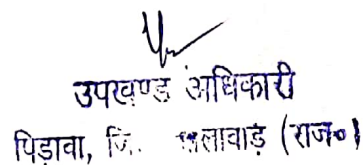 उपखण्ड अधिकारी
पिड़ावा, जि. झालावाड़ (राज०)